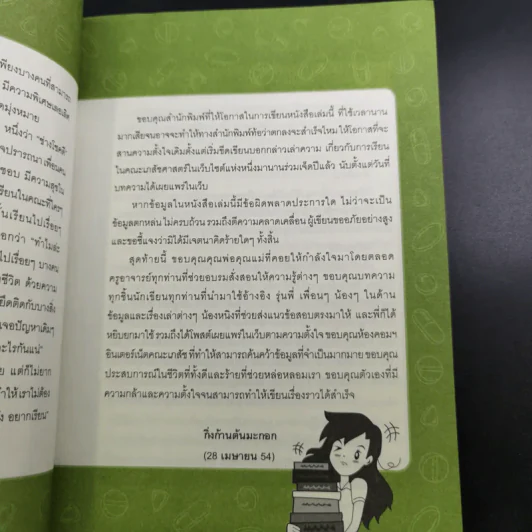 เพียงบางคนที่สามารถ
มีความพิเศษเลอเลิศ
ดมุ่งหมาย
หนึ่งว่า "ช่างโชคดี"
จปรารถนา เพื่อนคน
ขอบ มีความสุขใน
เรียนในคณะที่ใครๆ
นเรียนไปเรื่อยๆ
อกว่า "ทำไมล่ะ
ไปเรื่อยๆ บางคน
ชีวิต ด้วยความ
ยึดติดกับบางสิ่ง
เจอปัญหาเดิมๆ
อะไรกันแน่"
แต่ก็ไม่ยาก
ทำให้เราไม่ต้อง
อยากเรียน"
ขอบคุณสำนักพิมพ์ที่ให้โอกาสในการเขียนหนังสือเล่มนี้ ที่ใช้เวลานาน
มากเสียจนอาจจะทำให้ทางสำนักพิมพ์ท้อว่าตกลงจะสำเร็จไหม ให้โอกาสที่จะ
สานความตั้งใจเดิมตั้งแต่เริ่มขีดเขียนบอกกล่าวเล่าความ เกี่ยวกับการเรียน
ในคณะเภสัชศาสตร์ในเว็บไซต์แห่งหนึ่งมานานร่วมเจ็ดปีแล้ว นับตั้งแต่วันที่
บทความได้เผยแพร่ในเว็บ
หากข้อมูลในหนังสือเล่มนี้มีข้อผิดพลาดประการใด ไม่ว่าจะเป็น
ข้อมูลตกหล่น ไม่ครบถ้วน รวมถึงมีความคลาดเคลื่อน ผู้เขียนขออภัยอย่างสูง
และขอชี้แจงว่ามิได้มีเจตนาคิดร้ายใดๆ ทั้งสิ้น
สุดท้ายนี้ ขอบคุณคุณพ่อคุณแม่ที่คอยให้กำลังใจมาโดยตลอด
ครูอาจารย์ทุกท่านที่ช่วยอบรมสั่งสอนให้ความรู้ต่างๆ ขอบคุณบทความ
ทุกชิ้นนักเขียนทุกท่านที่นำมาใช้อ้างอิง รุ่นพี่ เพื่อนๆ น้องๆ ในด้าน
ข้อมูลและเรื่องเล่าต่างๆ น้องหนึ่งที่ช่วยส่งแนวข้อสอบตรงมาให้ และพี่ก็ได้
หยิบยกมาใช้ รวมถึงได้โพสต์เผยแพร่ในเว็บตามความตั้งใจ ขอบคุณห้องคอมฯ
อินเตอร์เน็ตคณะเภสัช ที่ทำให้สามารถค้นคว้าข้อมูลที่จำเป็นมากมาย ขอบคุณ
ประสบการณ์ในชีวิตที่ทั้งดีและร้ายที่ช่วยหล่อหลอมเรา ขอบคุณตัวเองที่มี
ความกล้าและความตั้งใจจนสามารถทำให้เขียนเรื่องราวได้สำเร็จ
กิ่งก้านต้นมะกอก
(28 เมษายน 54)